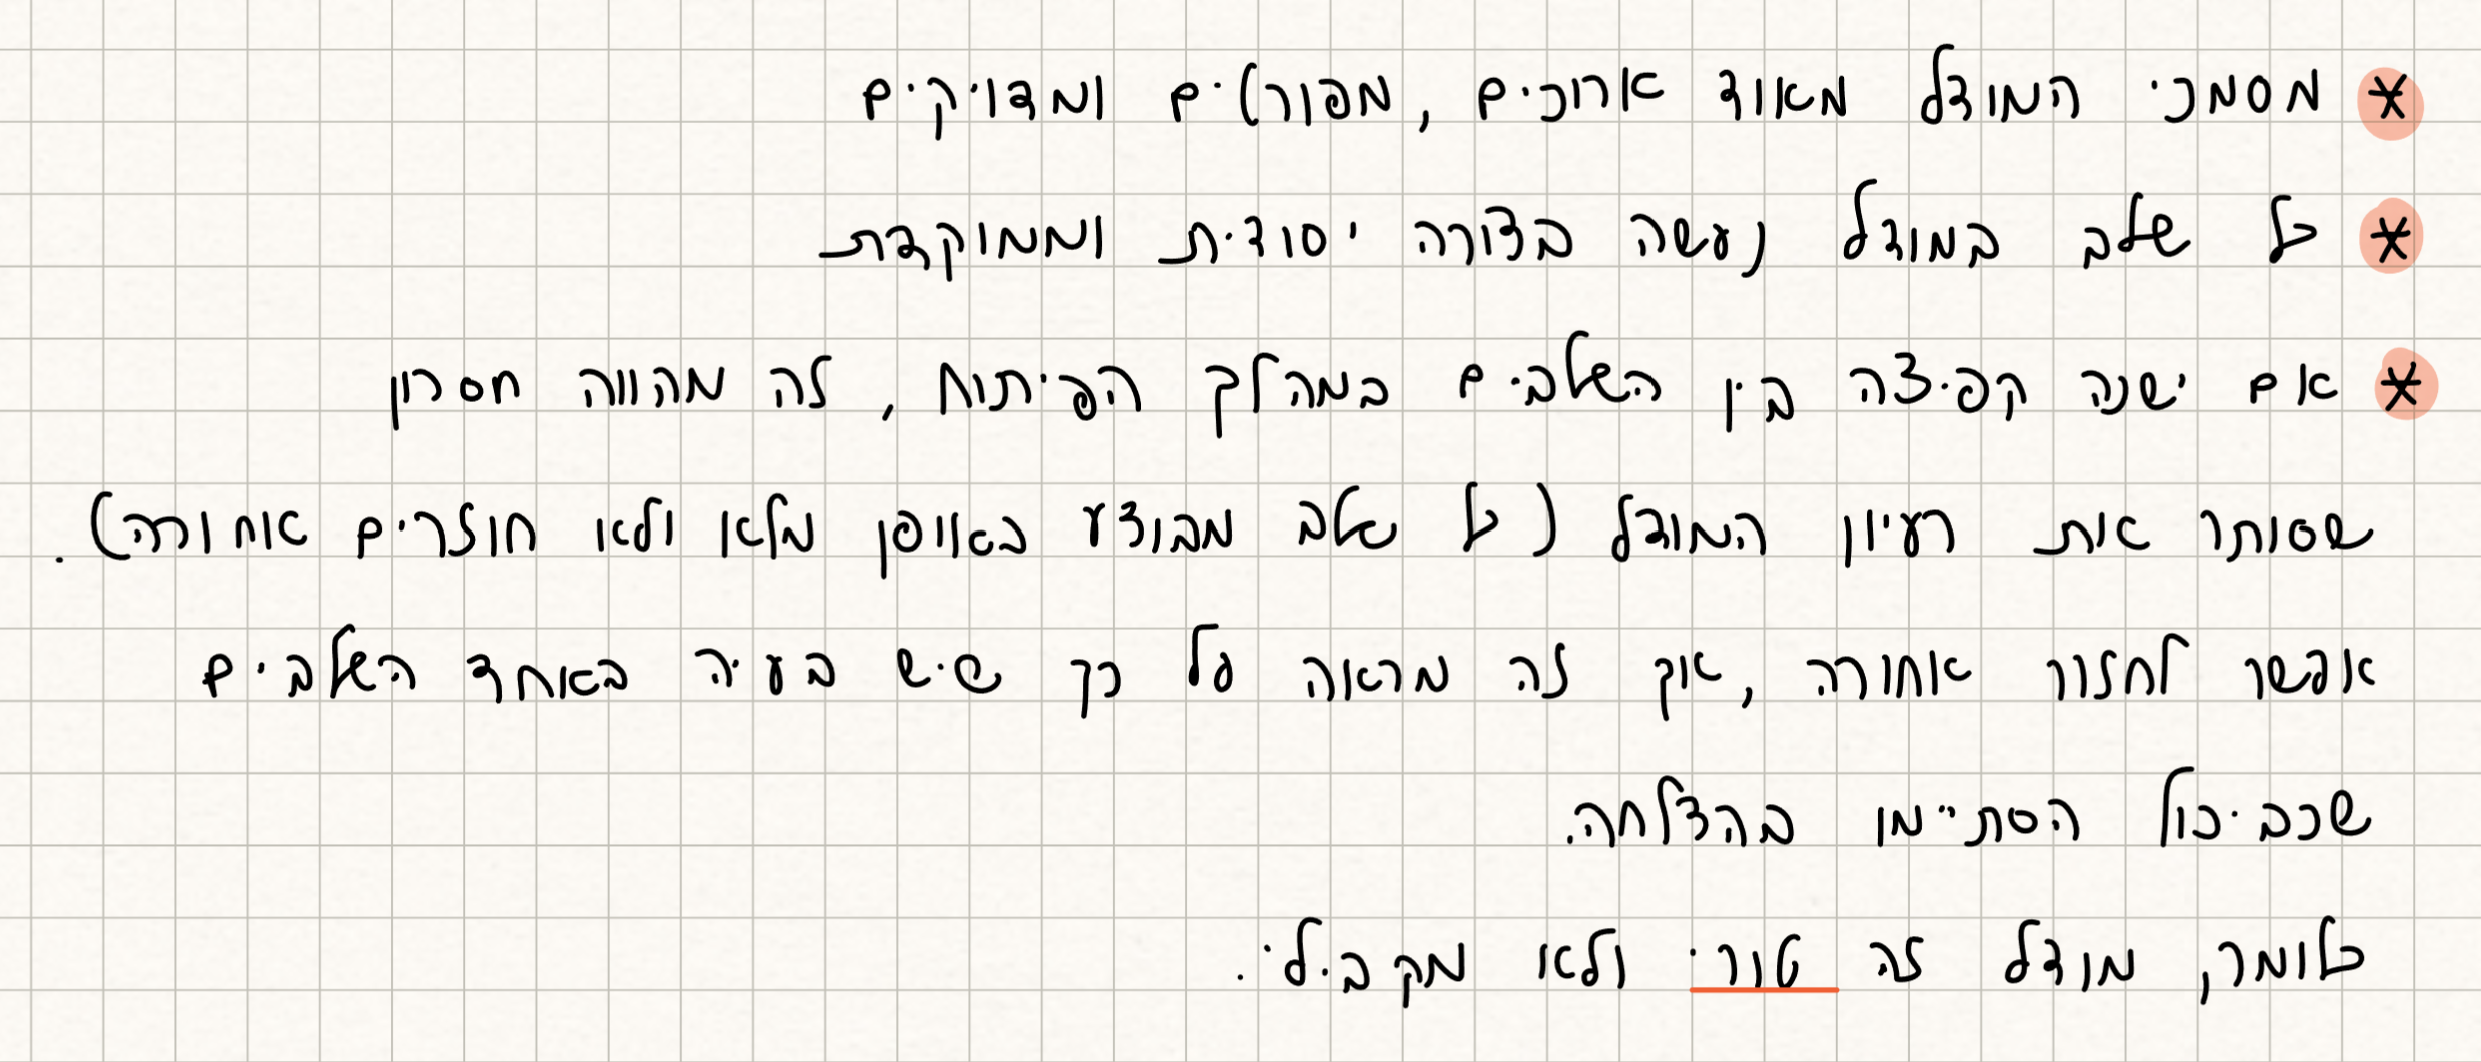 * מסמכי המודל מאוד ארוכים, מפורטים ומדויקים
* כל שלב במודל נעשה בצורה יסודית וממוקדת
* אם ישנה קפיצה בין השלבים במהלך הפיתוח, זה מהווה חסרון
שסותר את רעיון המודל (כל שלב מבוצע באופן מלא ולא חוזרים אחורה).
אפשר לחזור אחורה, אך זה מראה על כך שיש בעיה באחד השלבים
שכביכול הסתיימו בהצלחה.
כלומר, מודל זה טורי ולא מקבילי.